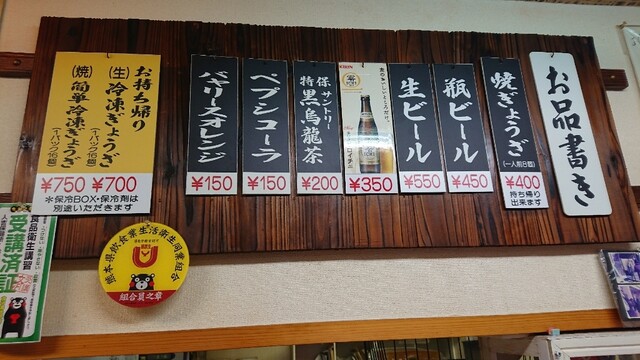 お品書き
焼ぎょうぎ
(一人前8個)
¥400
持ち帰り
出来ます
瓶ビール
¥450
生ビール
¥550
KIRIN
¥350
保 サントリー
特 黒烏龍茶
¥200
ペプシコーラ
¥150
バヤリースオレンジ
¥150
お持ち帰り
(生)冷凍ぎょうざ
(1パック16個)
(焼)簡単冷凍ぎょうざ
(1パック16個)
¥750 ¥700
*保冷BOX・保冷剤は
別途いただきます
熊本県飲食業生活衛生同業組合
組合員之章
食品衛生講習
受講済証